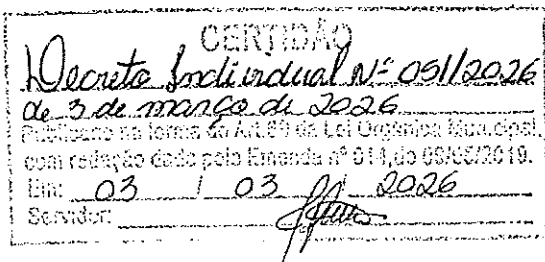 CERTIDÃO
Decreto Individual Nº 051/2026
de 3 de março de 2026
Publicado na forma da Art.69 da Lei Orgânica Municipal,
com redação dada pela Emenda nº 014,do 09/05/2019.
Em: 03 / 03 / 2026
Servidor: